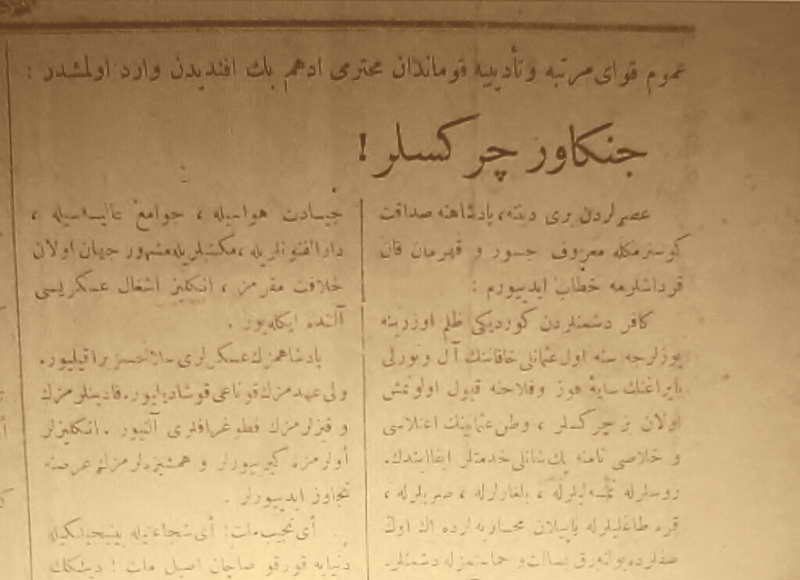 عموم قوای مرتبه و تأدیبیه قوماندان محترمی ادهم بك افندیدن وارد اولمشدر :
جنكاور چركسلر !
عصرلردن بری دینته، پادشاهنه صداقت
كوسترمكله معروف جسور و قهرمان قان
قرداشلرمه خطاب ایدییورم :
كافر دشمنلردن كوردیكی ظلم اوزرینه
یوزلرجه سنه اول عثمانلی خاقاننك آل و نورلی
بایراغنك سایهٔ فوز و فلاحنه قبول اولونمش
اولان بز چركسلر ، وطن عثمانینك اعلاسی
و خلاصی نامنه پك شانلی خدمتلر ایفا ایتدك.
روسلرله ، بلغارلرله ، صربلرله ،
قره طاغلیلرله یاپیلان محاربه لرده اك اوك
صفلرده بولنه رق بسالت و حماستمزله دشمنلر
هواسیله ، جوامع عالیه سیله ،
دارالفنونلریله ، مكتبلریله مشهور جهان اولان
خلافت مقرمز ، انكلیز اشغال عسكریسی
آلتنده ایكله یور .
پادشاهمزك عسكرلری سلاحسز براقیلیور.
ولی عهدمزك قوناغی قوشادیلیور. قادینلرمزك
و قیزلرمزك فطوغرافلری آلنیور . انكلیزلر
أولرمزه كیرییورلر و همشیره لرمزك عرضنه
تجاوز ایدییورلر .
أی نجیب ملت ! أی شجاعتیله
دنیایه قورقو صاچان اصیل ملت !